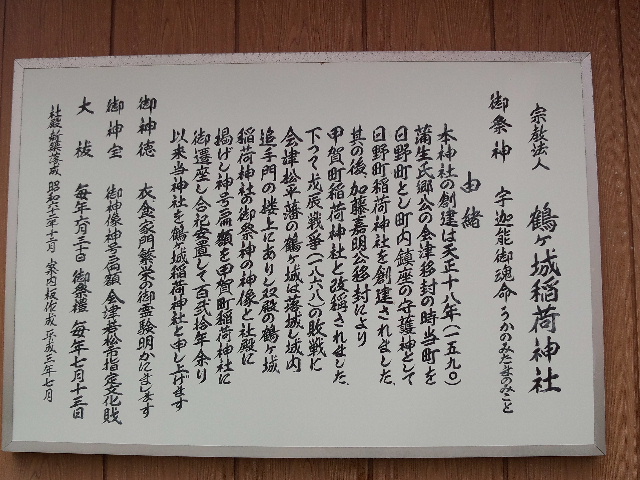 宗教法人 鶴ヶ城稲荷神社
御祭神 宇迦能御魂命 うかのみたまのみこと
由緒
本神社の創建は天正十八年(一五九〇)
蒲生氏郷公の会津移封の時当町を
日野町とし町内鎮座の守護神として
日野町稲荷神社を創建されました
其の後加藤嘉明公移封により
甲賀町稲荷神社と改稱されました
下つて戊辰戦争(一八六八)の敗戦に
会津松平藩の鶴ヶ城は落城し城内
追手門の楼上にありし起殿の鶴ヶ城
稲荷神社の御祭神の神像と社殿に
掲げし神号扁額を甲賀町稲荷神社に
御遷座し合祀安置して百弐拾年余り
以来当神社を鶴ヶ城稲荷神社と申し上げます
御神徳 衣食家門繁栄の御霊験明かにまします
御神宝 御神像神号扁額 会津若松市指定文化財
大祓 毎年六月三十日 御祭禮 毎年七月十三日
社殿新築落成 昭和六十二年十二月 案内板作成 平成三年七月